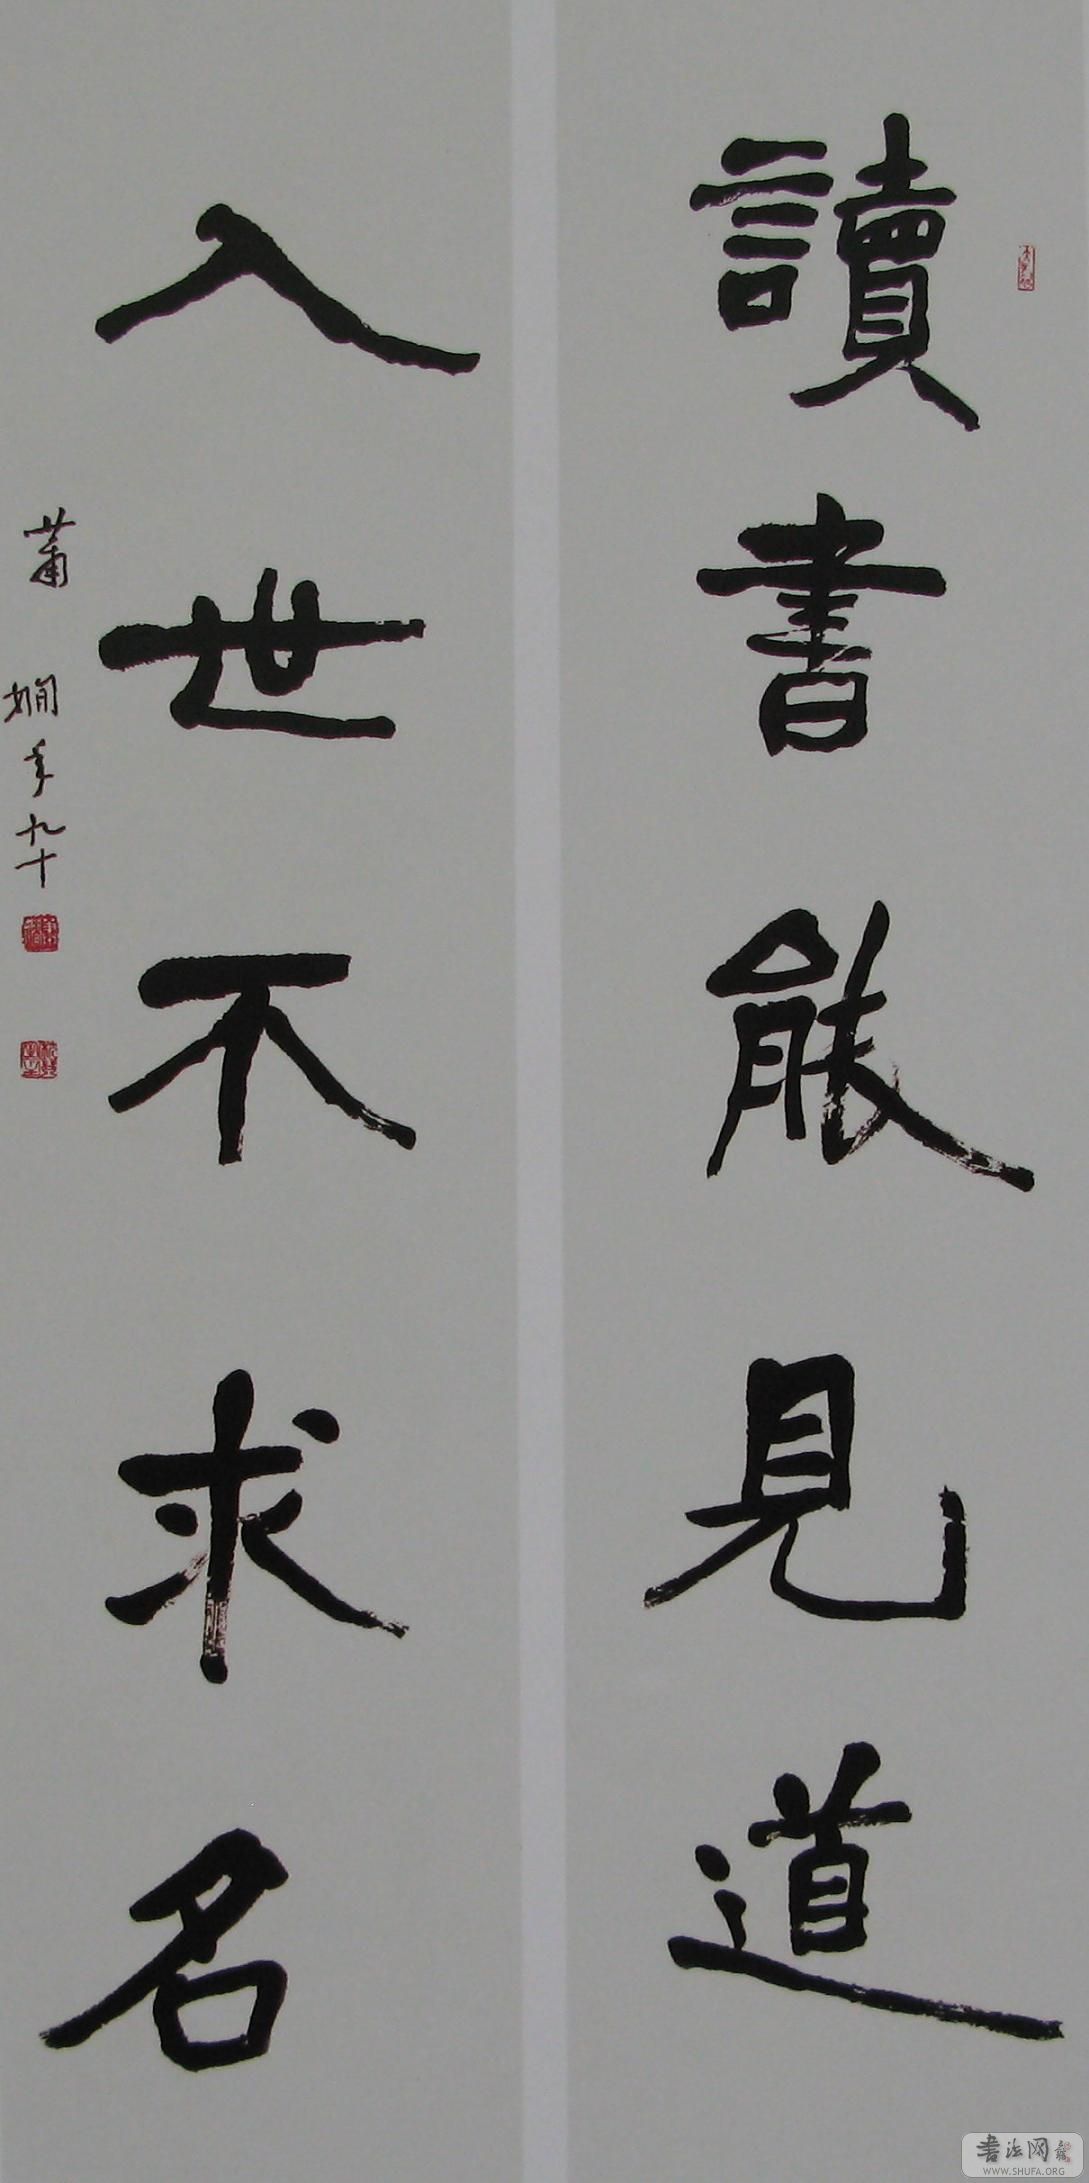 讀書能見道
入世不求名
蕭嫻年九十
書法网
WWW.SHUFA.ORG